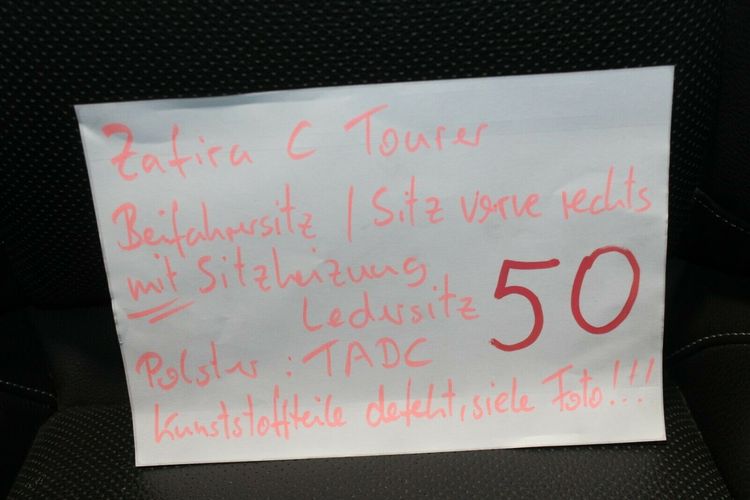 Zafira C Tourer
Beifahrersitz / Sitz vorne rechts
mit Sitzheizung
Ledersitz 50
Polster : TADC
Kunststoffteile defekt, siehe Foto!!!